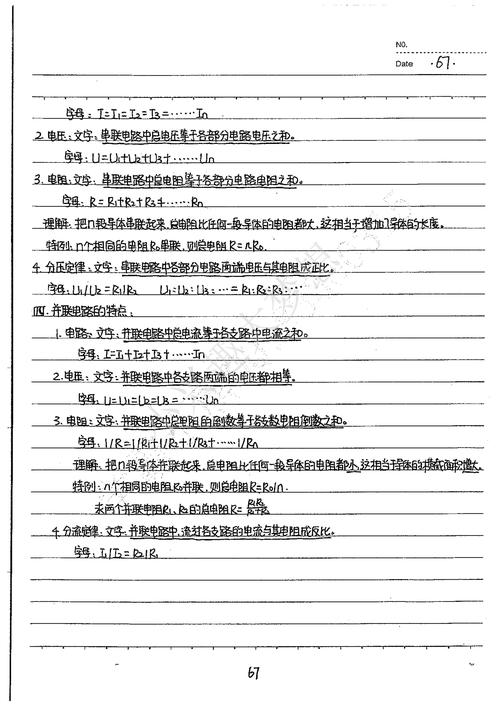 NO.
Date ·67·
字母: I=I1=I2=I3=……In
2. 电压: 文字: 串联电路中总电压等于各部分电路电压之和。
字母: U=U1+U2+U3+……Un
3. 电阻: 文字: 串联电路中总电阻等于各部分电路电阻之和。
字母: R=R1+R2+R3+……Rn
理解: 把n段导体串联起来,总电阻比任何一段导体的电阻都大,这相当于增加了导体的长度。
特例: n个相同的电阻R0串联,则总电阻R=nR0.
4. 分压定律: 文字: 串联电路中各部分电路两端电压与其电阻成正比。
字母: U1/U2=R1/R2 U1:U2:U3:…=R1:R2:R3:…
四. 并联电路的特点:
1. 电路: 文字: 并联电路中总电流等于各支路中电流之和。
字母: I=I1+I2+I3+……In
2. 电压: 文字: 并联电路中各支路两端的电压都相等。
字母: U=U1=U2=U3=……Un
3. 电阻: 文字: 并联电路中总电阻的倒数等于各支路电阻倒数之和。
字母: 1/R=1/R1+1/R2+1/R3+……1/Rn
理解: 把n段导体并联起来,总电阻比任何一段导体的电阻都小,这相当于导体的横截面积增大。
特例: n个相同的电阻R0并联,则总电阻R=R0/n.
求两个并联电阻R1、R2的总电阻R=R1R2/R1+R2
4. 分流定律: 文字: 并联电路中,流过各支路的电流与其电阻成反比。
字母: I1/I2=R2/R1
67